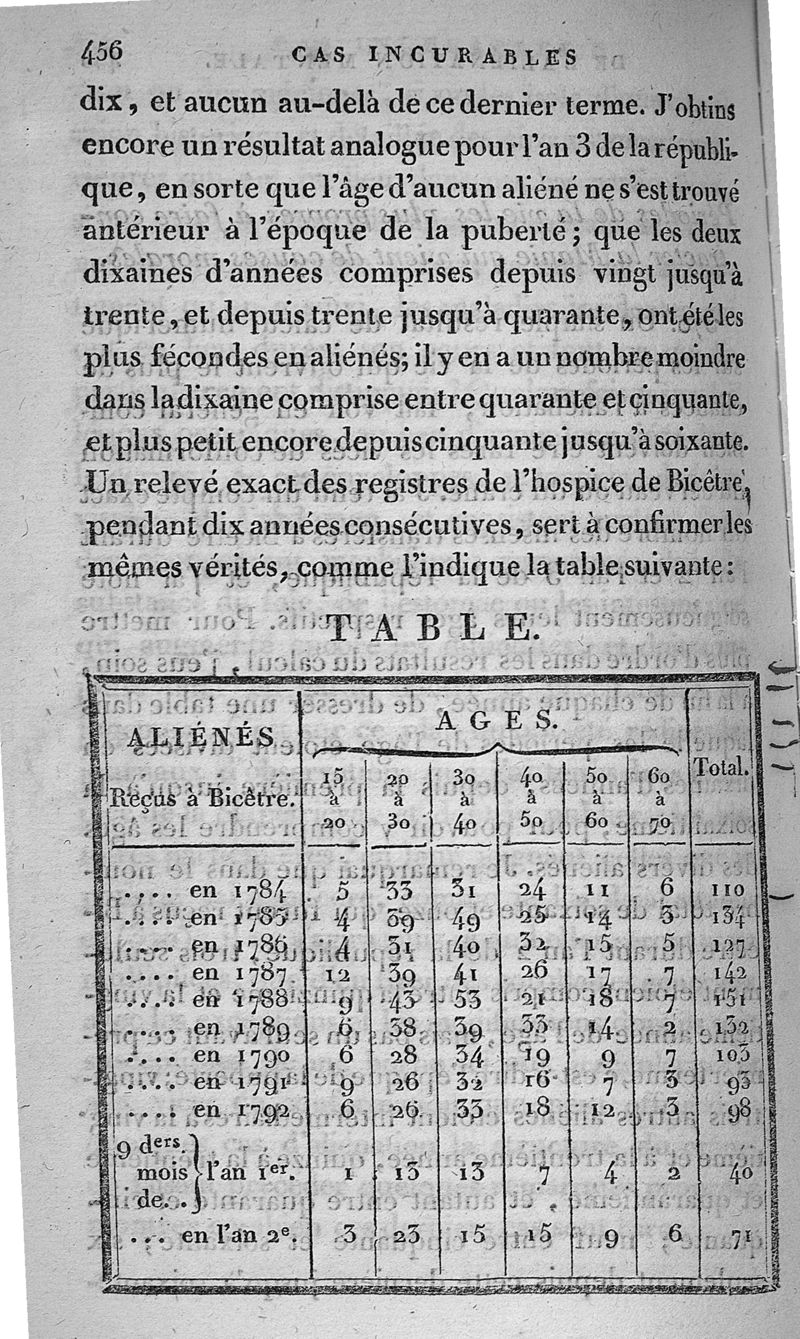 456 CAS INCURABLES
dix, et aucun au-delà de ce dernier terme. J'obtins
encore un résultat analogue pour l'an 3 de la républi-
que, en sorte que l'âge d'aucun aliéné ne s'est trouvé
antérieur à l'époque de la puberté; que les deux
dixaines d'années comprises depuis vingt jusqu'à
trente, et depuis trente jusqu'à quarante, ont été les
plus fécondes en aliénés; il y en a un nombre moindre
dans la dixaine comprise entre quarante et cinquante,
et plus petit encore depuis cinquante jusqu'à soixante.
Un relevé exact des registres de l'hospice de Bicêtre,
pendant dix années consécutives, sert à confirmer les
mêmes vérités, comme l'indique la table suivante:
TABLE.
ALIÉNÉS AGES. Total.
Reçus à Bicêtre. 15 à 20 20 à 30 30 à 40 40 à 50 50 à 60 60 à 70
.... en 1784 5 33 31 24 11 6 110
.... en 1785 4 39 49 25 14 3 134
.... en 1786 4 31 40 32 15 5 127
.... en 1787 12 39 41 26 17 7 142
.... en 1788 9 43 53 21 18 7 151
.... en 1789 6 38 39 33 14 2 132
.... en 1790 6 28 34 19 9 7 103
.... en 1791 9 26 32 16 7 3 93
.... en 1792 6 26 33 18 12 3 98
9 ders.
mois } l'an 1er. 1 13 13 7 4 2 40
de. .
... en l'an 2e. 3 23 15 15 9 6 71